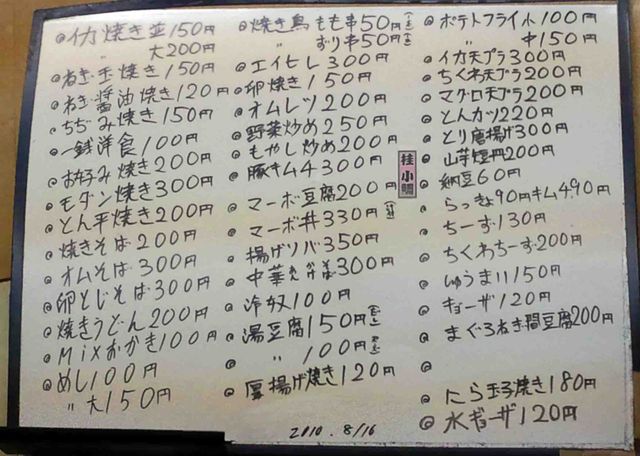 ◎イカ焼き並150円
〃 大200円
◎ねぎ玉焼き150円
◎ねぎ醤油焼き120円
◎ちぢみ焼き150円
◎一銭洋食100円
◎お好み焼き200円
◎モダン焼き300円
◎とん平焼き200円
◎焼きそば200円
◎オムそば300円
◎卵とじそば300円
◎焼きうどん200円
◎Mixおかき100円
◎めし100円
〃大150円
◎焼き鳥もも串50円
〃 ずり串50円
◎エイヒレ300円
◎卵焼き150円
◎オムレツ200円
◎野菜炒め250円
◎もやし炒め200円
◎豚キムチ300円
◎マーボ豆腐200円
◎マーボ丼330円
◎揚げソバ350円
◎中華そば300円
◎冷奴100円
◎湯豆腐150円
◎ 〃 100円
◎厚揚げ焼き120円
2010.8/16
桂小鯛
◎ポテトフライ小100円
〃 中150円
◎イカ天プラ300円
◎ちくわ天プラ200円
◎マグロ天プラ200円
◎とんカツ220円
◎とり唐揚げ300円
◎山芋短冊200円
◎納豆60円
◎らっきょ90円キムチ90円
◎ちーず130円
◎ちくわちーず200円
◎しゅうまい150円
◎ギョーザ120円
◎まぐろねぎ間豆腐200円
◎
◎にら玉子焼き180円
◎水ギョーザ120円